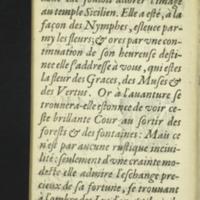 que souloit adorer l'image
au temple Sicilien. Elle a esté, à la
façon des Nymphes, esleuee par-
my les fleurs; & ores par vne con-
tinuation de son heureuse desti-
nee elle s'addresse à vous, qui estes
la fleur des Graces, des Muses &
des Vertus. Or à l'auanture se
trouuera-elle estonnee de voir ce-
ste brillante Cour au sortir des
forests & des fontaines: Mais ce
n'est par aucune rustique inciui-
lité: seulement d'vne crainte mo-
deste elle admire l'eschange pre-
cieux de sa fortune, se trouuant
à l'ombre des